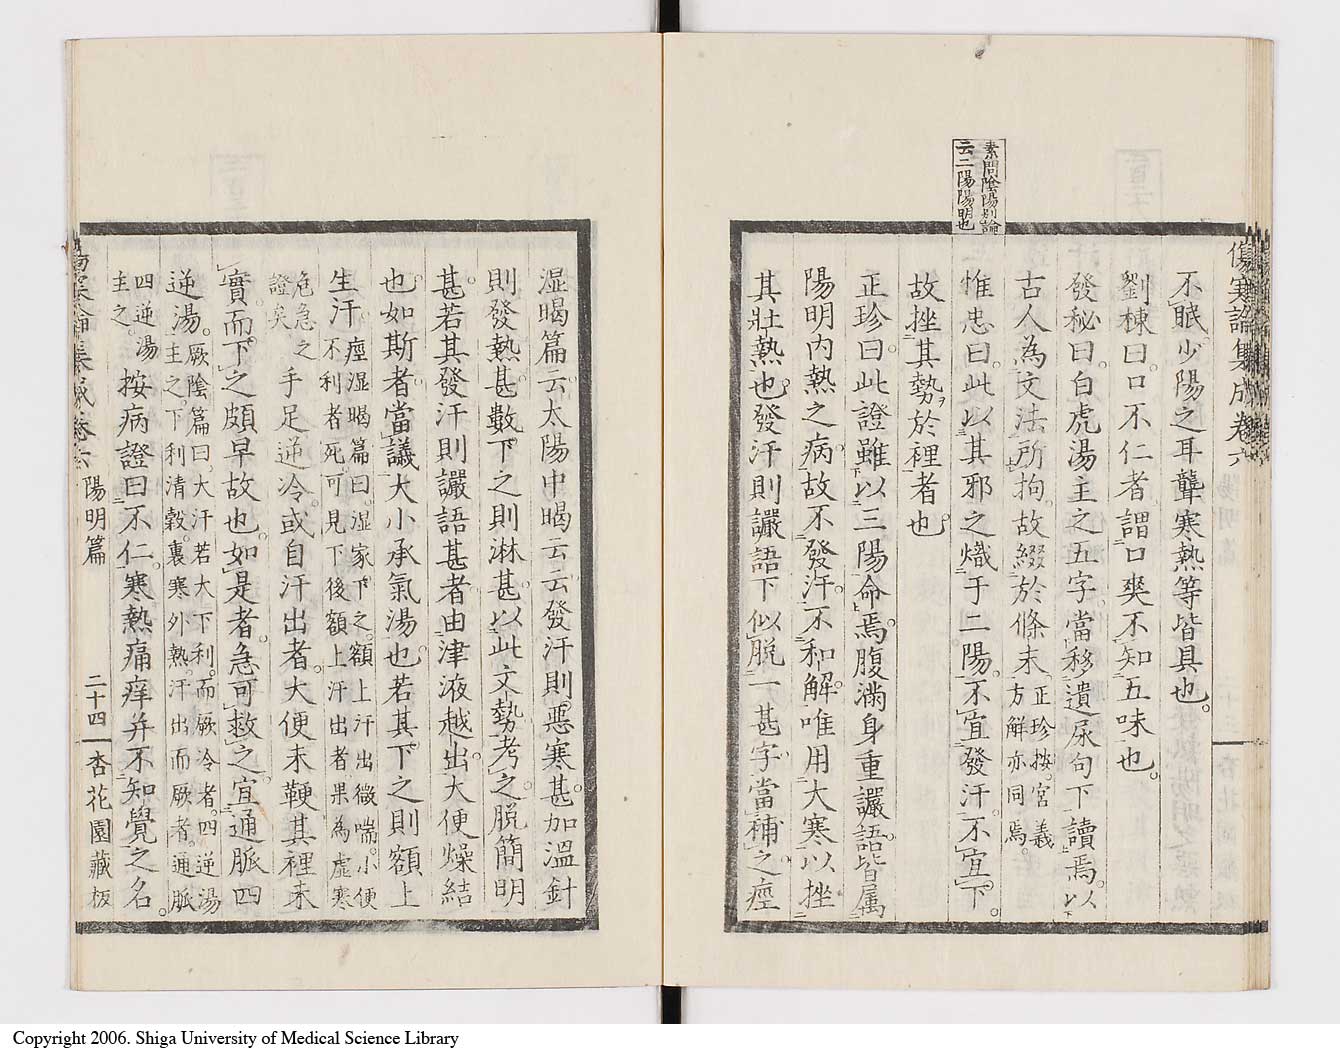 傷寒論集成卷六
素問陰陽別論
云二陽陽明也
不眠。少陽之耳聾寒熱等皆具也。
劉棟曰。口不仁者。謂口爽不知五味也。
發秘曰。白虎湯主之五字。當移遺尿句下讀焉。以
古人為文法所拘。故綴於條末。正珍按。宮義方解亦同焉。
惟忠曰。此以其邪之熾于二陽。不宜發汗。不宜下。
故挫其勢於裡者也。
正珍曰。此證雖以三陽命焉。腹滿身重讝語。皆属
陽明内熱之病。故不發汗。不和解。唯用大寒以挫
其壯熱也。發汗則讝語下似脱一甚字。當補之。痙
湿暍篇云。太陽中暍云云。發汗則惡寒甚。加溫針
則發熱甚。數下之則淋甚。以此文勢考之。脱簡明
甚。若其發汗則讝語甚者。由津液越出。大便燥結
也。如斯者。當議大小承氣湯也。若其下之則額上
生汗。痙湿暍篇曰。湿家下之。額上汗出微喘。小便不利者死。可見下後額上汗出者果為虛寒
危急之證矣。手足逆冷。或自汗出者。大便未鞕。其裡未
實。而下之頗早故也。如是者。急可救之。宜通脈四
逆湯。厥陰篇曰。大汗若大下利。而厥冷者。四逆湯主之。下利清穀。裏寒外熱。汗出而厥者。通脈
四逆湯主之。按病證曰。不仁。寒熱痛痒并不知覺之名。
陽明篇
二十四
杏花園藏板
Copyright 2006. Shiga University of Medical Science Library